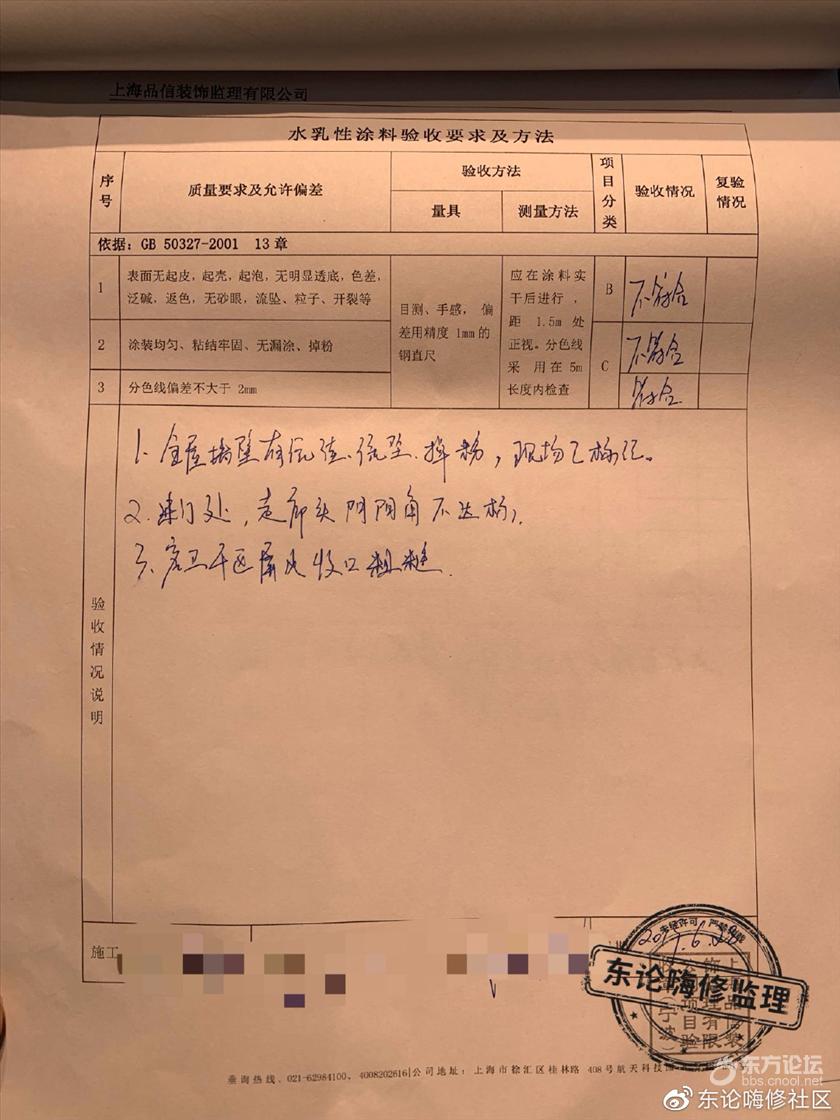 上海品信装饰监理有限公司
水乳性涂料验收要求及方法
序号 质量要求及允许偏差 验收方法 项目分类 验收情况 复验情况
量具 测量方法
依据：GB 50327-2001 13章
1 表面无起皮，起壳，起泡，无明显透底，色差，泛碱，返色，无砂眼，流坠、粒子、开裂等
目测、手感，偏差用精度 1mm的钢直尺
应在涂料实干后进行，距 1.5m 处正视。分色线采 用在5m长度内检查
B 不符合
2 涂装均匀、粘结牢固、无漏涂、掉粉
C 不符合
3 分色线偏差不大于 2mm
符合
验收情况说明
1. 全屋墙壁有 流坠 掉粉，现场已标记。
2. 处，走廊头阴阳角不达标，
3、客卫干区 收口粗糙.
施工
东论嗨修监理
垂询热线、021-62984100、4008202616|公司地址：上海市徐汇区桂林路 408号航天科技
东方论坛
bbs.cnool.net
@东论嗨修社区